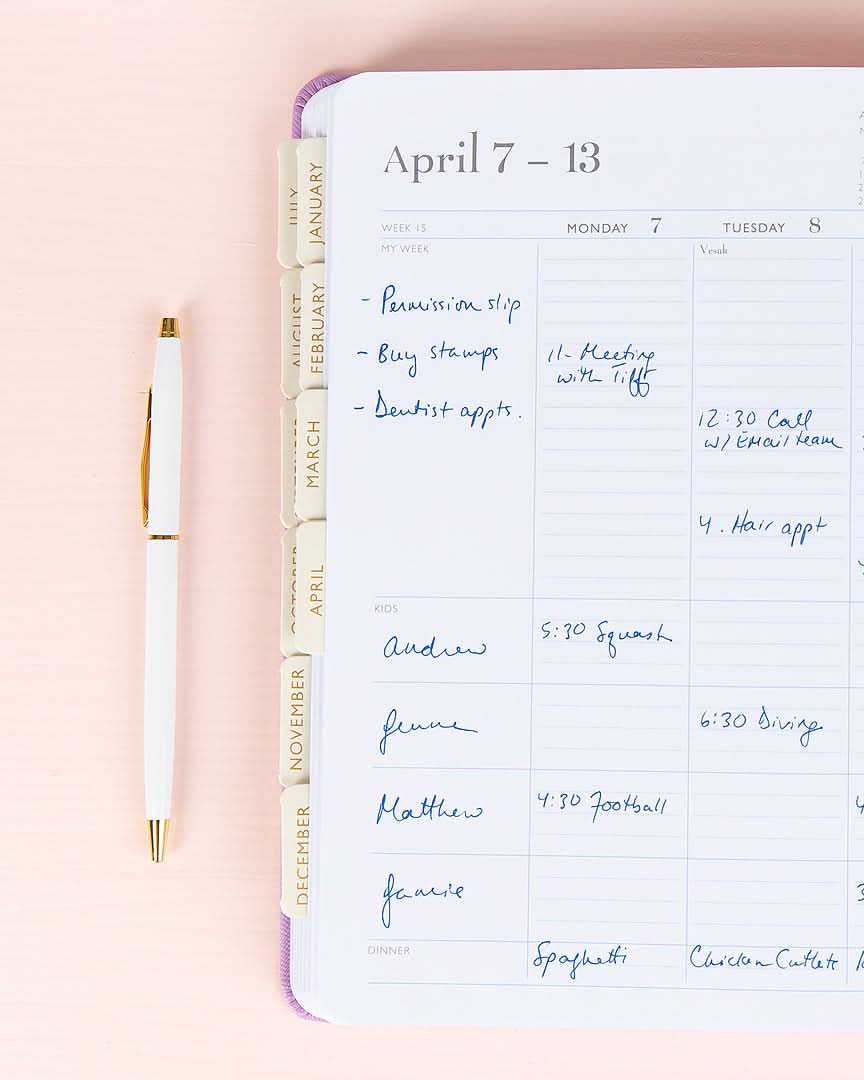 April 7 – 13
WEEK 15
MONDAY 7
TUESDAY 8
MY WEEK
Vesak
- Permission slip
- Buy stamps
- Dentist appts.
11- Meeting
with Tiff
12:30 Call
w/ EMail team
4. Hair appt
KIDS
Andrew
5:30 Squash
Jenne
6:30 Diving
Matthew
4:30 Football
Jamie
DINNER
Spaghetti
Chicken Cutlets
JANUARY
FEBRUARY
MARCH
APRIL
JULY
AUGUST
OCTOBER
NOVEMBER
DECEMBER